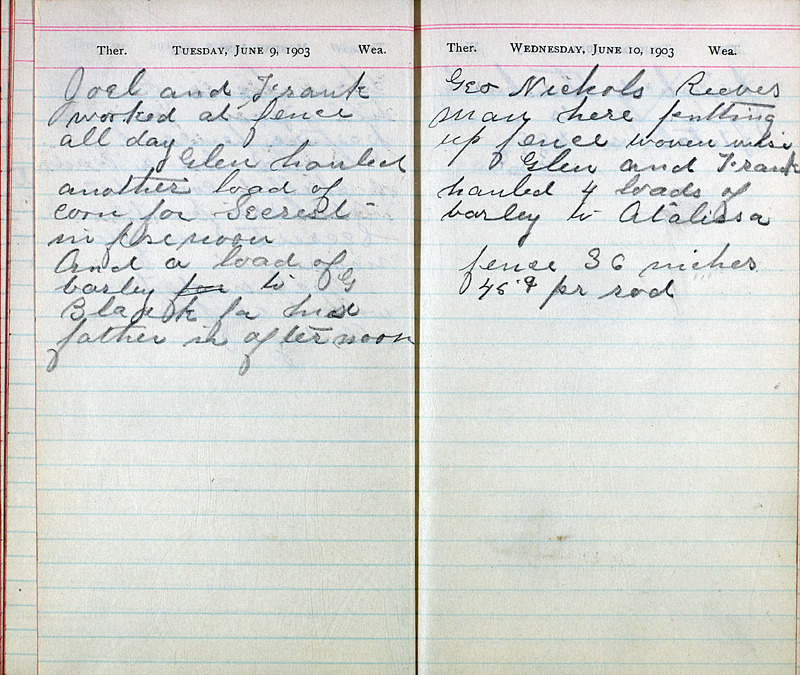 Ther. TUESDAY, JUNE 9, 1903 Wea.
Joel and Frank
worked at fence
all day
Glen hauled
another load of
corn for Secrest
in forenoon
And a load of
barley for to G
Black for his
father in afternoon
Ther. WEDNESDAY, JUNE 10, 1903 Wea.
Geo Nickols Reeves
man here putting
up fence woven wire
Glen and Frank
hauled 4 loads of
barley to Atalissa
fence 36 inches
45 ¢ pr rod